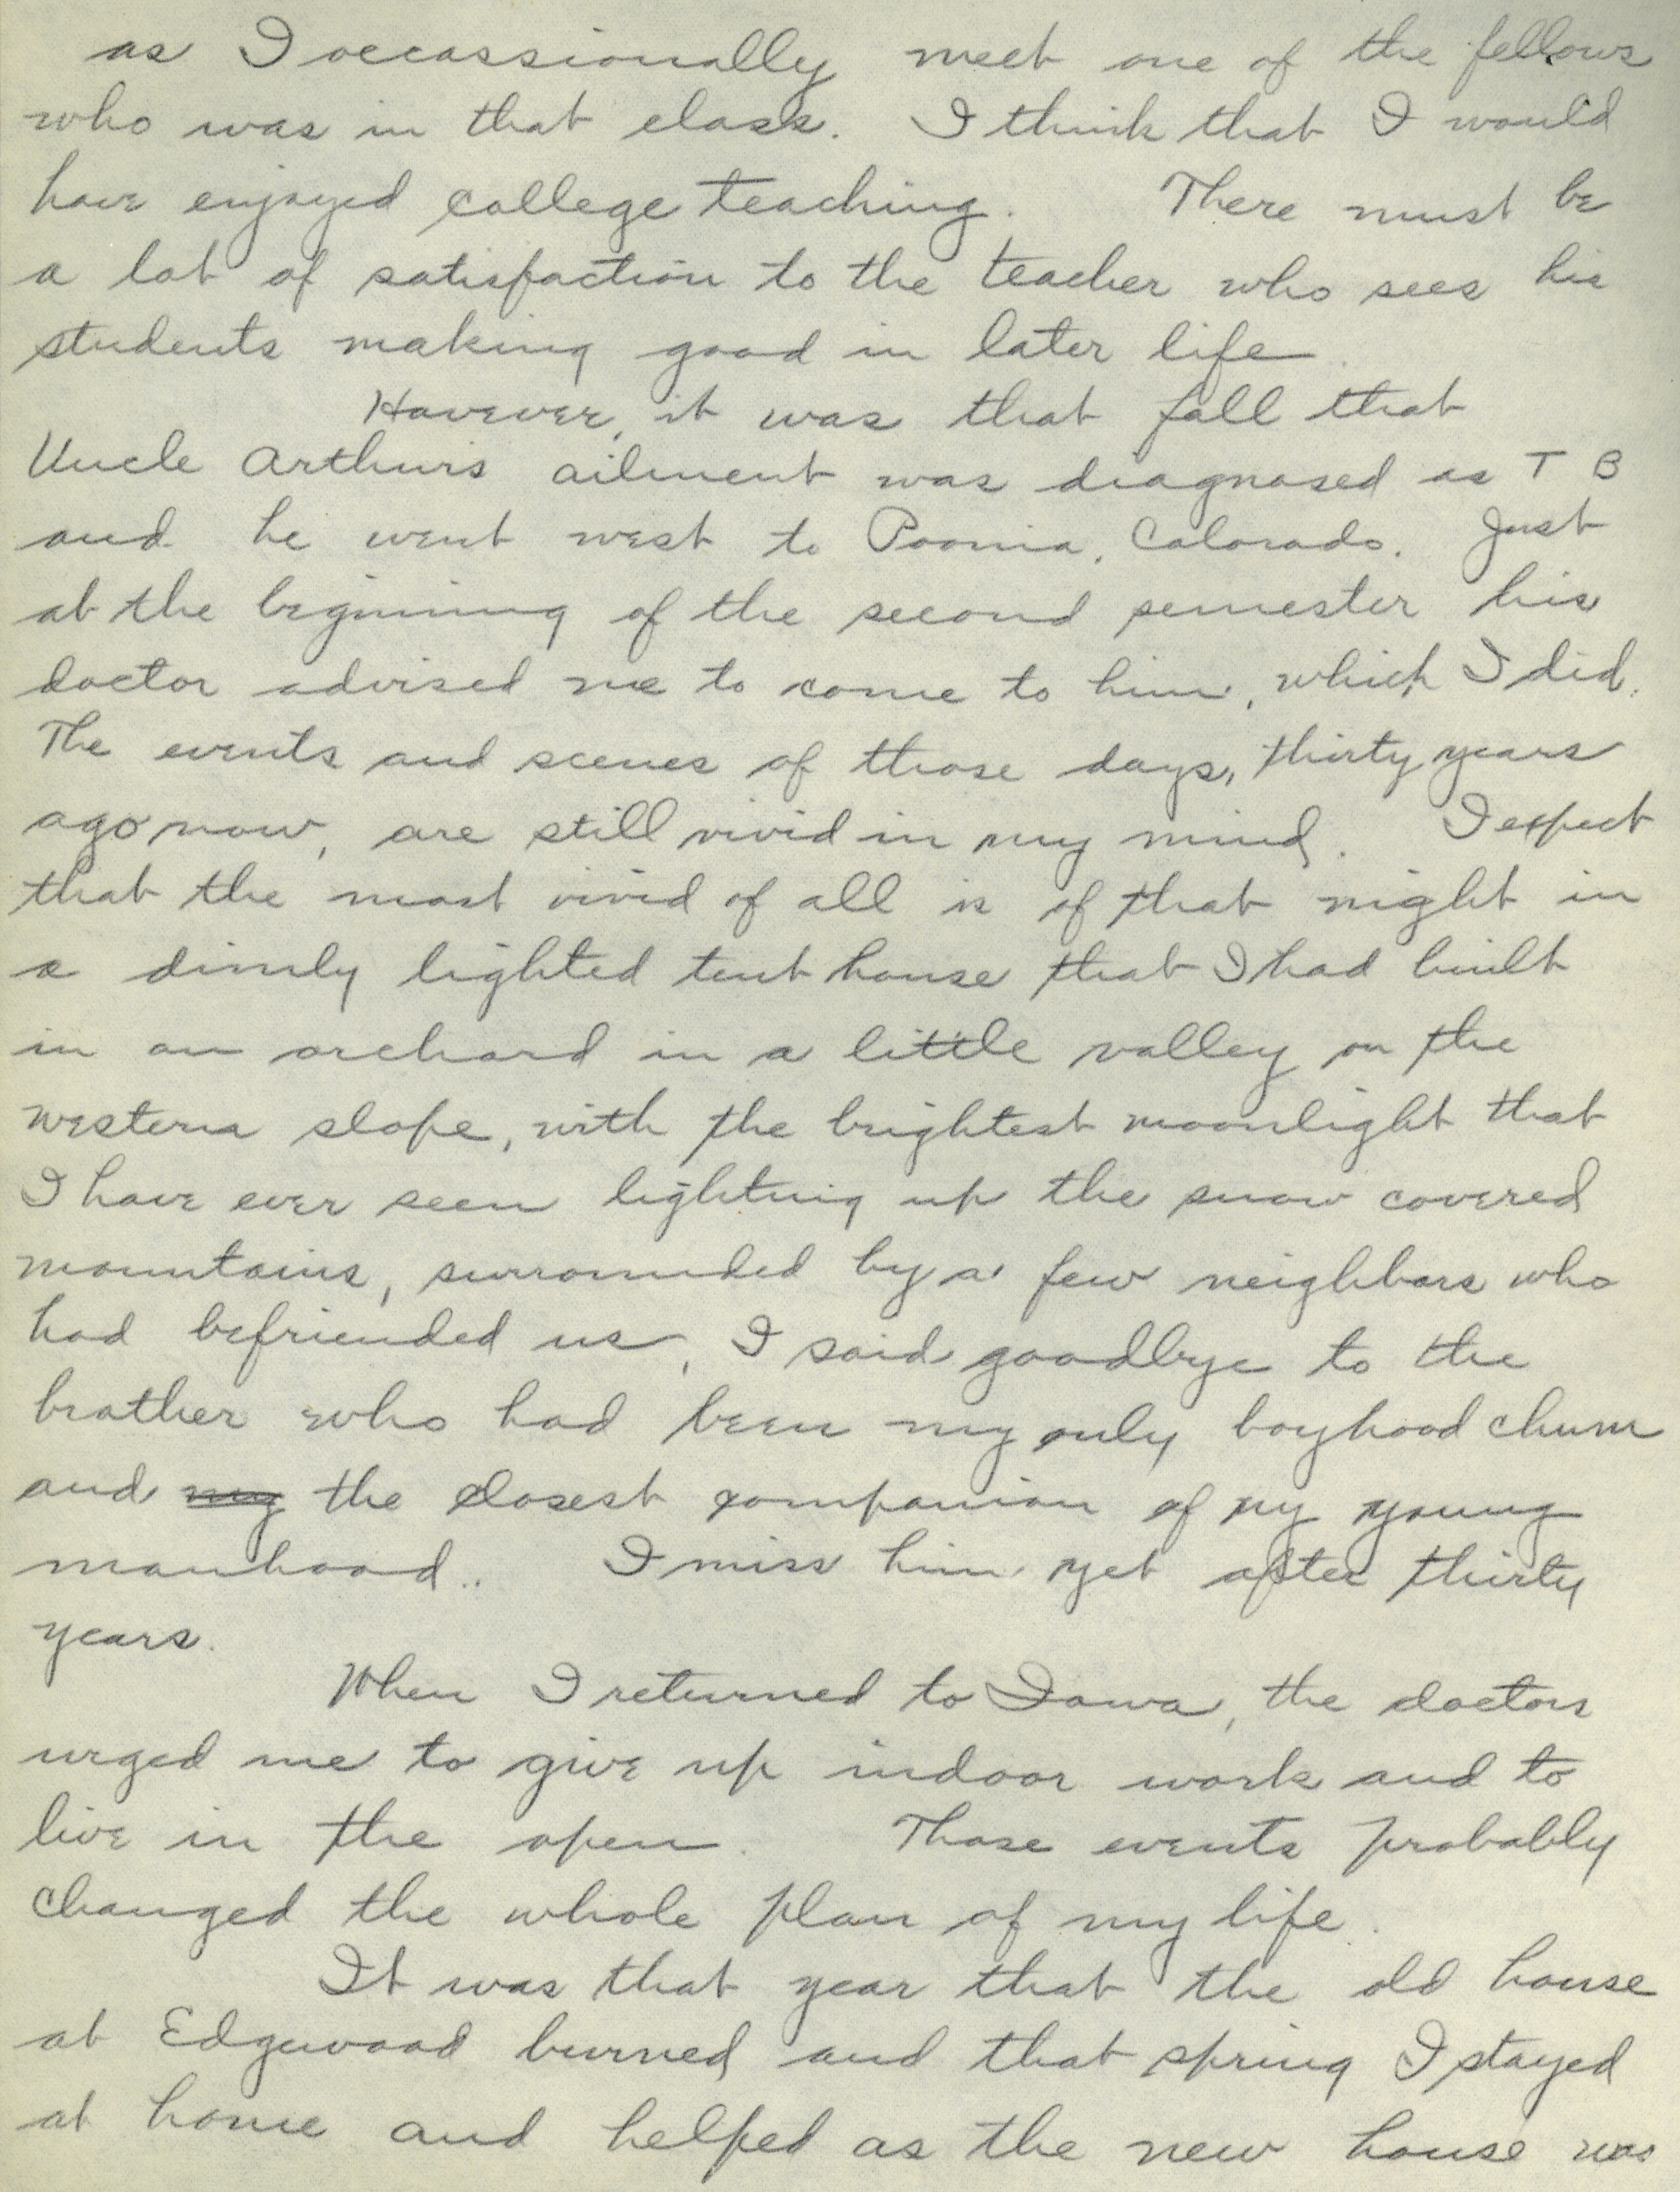 as I occassionally meet one of the fellows
who was in that class. I think that I would
have enjoyed college teaching. There must be
a lot of satisfaction to the teacher who sees his
students making good in later life.
However, it was that fall that
Uncle Arthurs ailment was diagnosed as T B
and he went west to Poonia, Colorado. Just
at the beginning of the second semester his
doctor advised me to come to him, which I did.
The events and scenes of those days, thirty years
ago now, are still vivid in my mind. I expect
that the most vivid of all is of that night in
a dimly lighted tent house that I had built
in an orchard in a little valley on the
western slope, with the brightest moonlight that
I have ever seen lighting up the snow covered
mountains, surrounded by a few neighbors who
had befriended us, I said goodbye to the
brother who had been my only boyhood chum
and my the closest companion of my young
manhood.. I miss him yet after thirty
years.
When I returned to Iowa, the doctors
urged me to give up indoor work and to
live in the open. Those events probably
changed the whole plan of my life.
It was that year that the old house
at Edgewood burned and that spring I stayed
at home and helped as the new house was